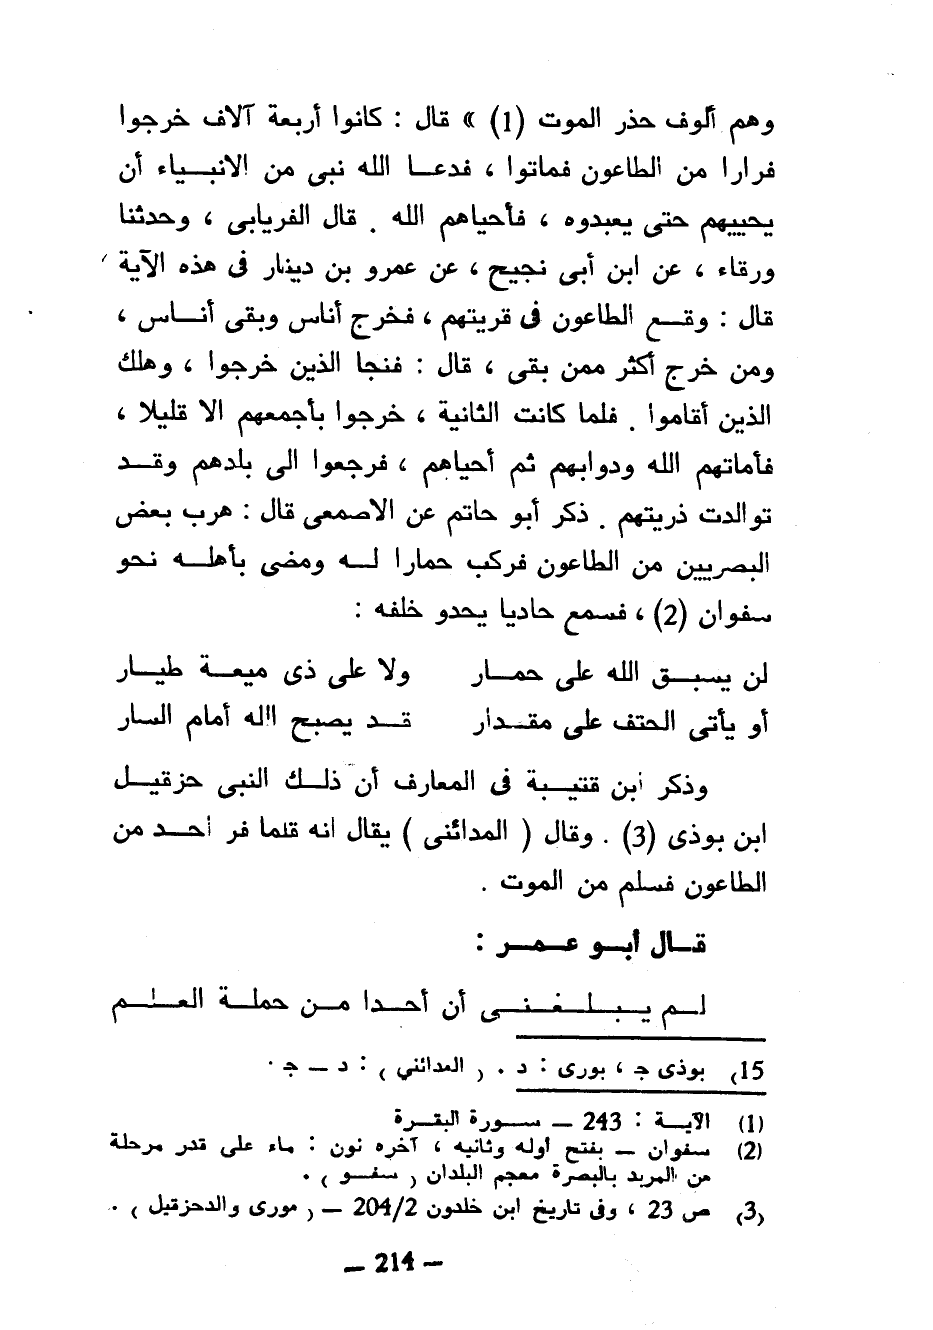 وهم ألوف حذر الموت (1) » قال : كانوا أربعة آلاف خرجوا
فرارا من الطاعون فماتوا ، فدعا الله نبى من الانبياء أن
يحييهم حتى يعبدوه ، فأحياهم الله . قال الفريابى ، وحدثنا
ورقاء ، عن ابن أبى نجيح ، عن عمرو بن دينار فى هذه الآية
قال : وقع الطاعون فى قريتهم ، فخرج أناس وبقى أناس ،
ومن خرج أكثر ممن بقى ، قال : فنجا الذين خرجوا ، وهلك
الذين أقاموا . فلما كانت الثانية ، خرجوا بأجمعهم الا قليلا ،
فأماتهم الله ودوابهم ثم أحياهم ، فرجعوا الى بلادهم وقد
توالدت ذريتهم . ذكر أبو حاتم عن الاصمعى قال : هرب بعض
البصريين من الطاعون فركب حمارا له ومضى بأهله نحو
سفوان (2) ، فسمع حاديا يحدو خلفه :
لن يسبق الله على حمار ولا على ذى ميعة طيار
أو يأتى الحتف على مقدار قد يصبح الله أمام السار
وذكر ابن قتيبة فى المعارف أن ذلك النبى حزقيل
ابن بوذى (3) . وقال ( المدائنى ) يقال انه قلما فر أحد من
الطاعون فسلم من الموت .
قال أبو عمر :
لم يبلغنى أن أحدا من حملة العلم
15) بوذى ج ، بورى : د . ( المدائني ) : د - ج .
(1) الآية : 243 - سورة البقرة
(2) سفوان - بفتح أوله وثانيه ، آخره نون : ماء على قدر مرحلة
من المربد بالبصرة معجم البلدان ( سفو ) .
(3) ص 23 ، وفى تاريخ ابن خلدون 204/2 - ( مورى والدحزقيل ) .
- 214 -